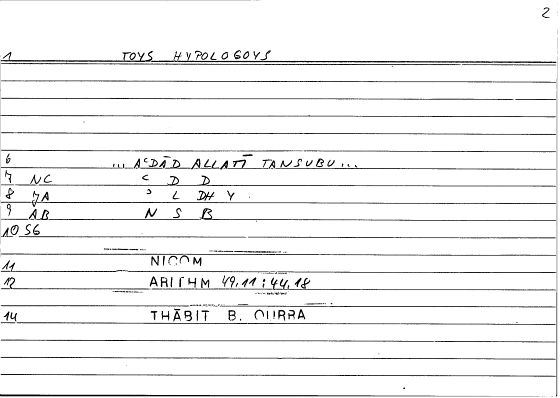 2
1 TOYS HYPOLOGOYS
6 ... AᶜDĀD ALLATĪ TANSUBU...
7 NC ᶜ D D
8 JA ᵓ L DH Y
9 AB N S B
10 S6
11 NICOM
12 ARITHM 49,11 : 44,18
14 THĀBIT B. QURRA